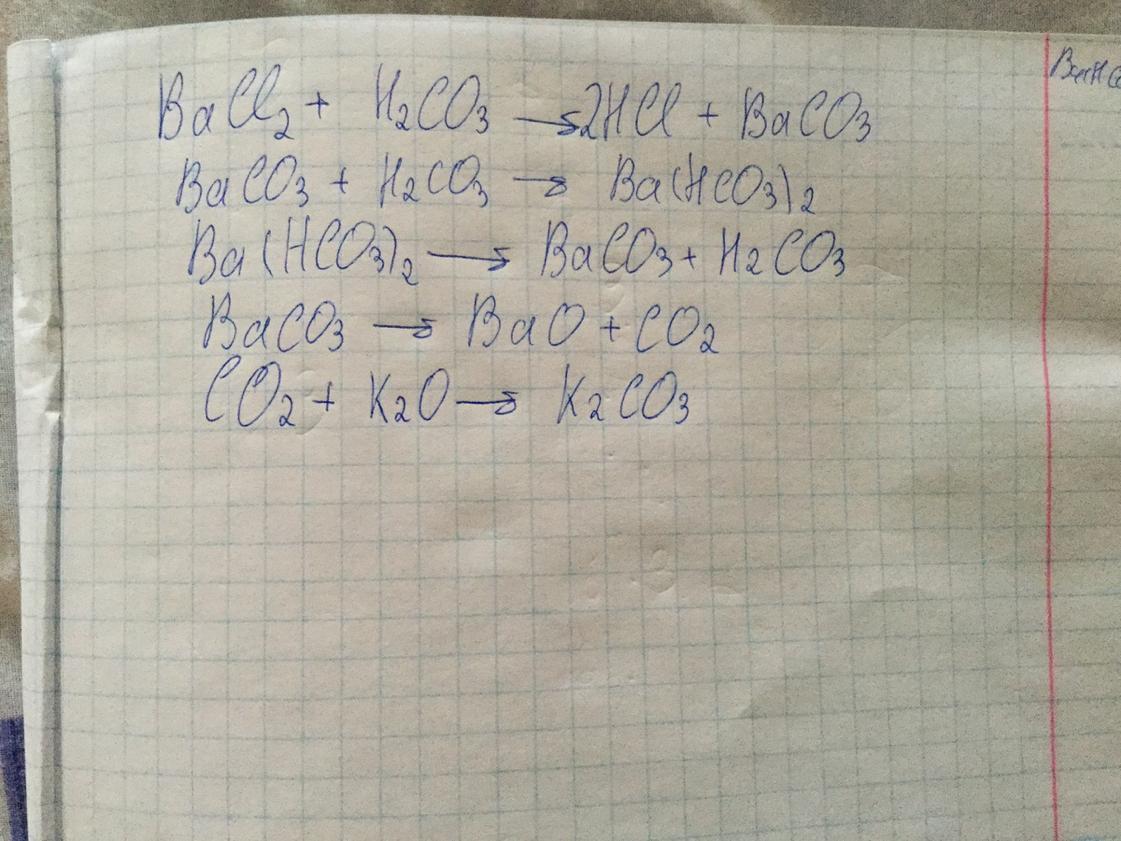 BaCl₂ + H₂CO₃ → 2HCl + BaCO₃
BaCO₃ + H₂CO₃ → Ba(HCO₃)₂
Ba(HCO₃)₂ → BaCO₃ + H₂CO₃
BaCO₃ → BaO + CO₂
CO₂ + K₂O → K₂CO₃